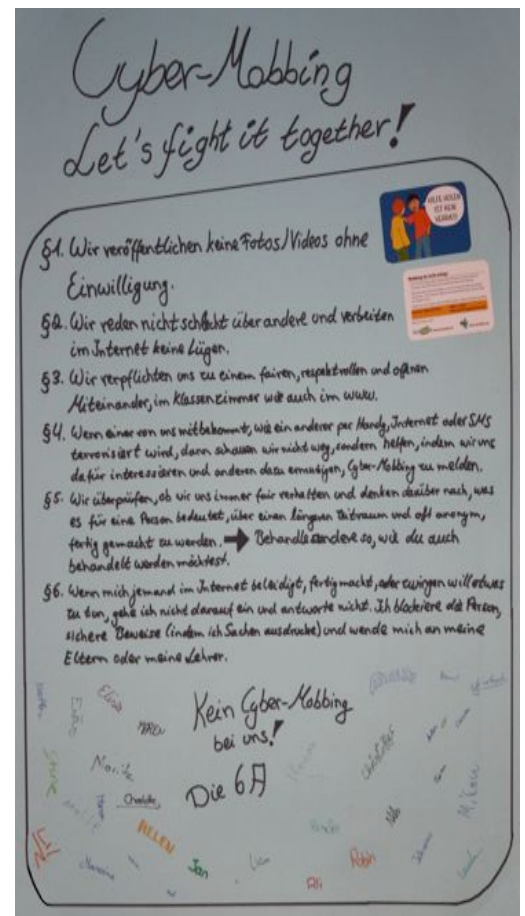 Cyber-Mobbing
Let's fight it together!
HILFE HOLEN
IST KEIN
VERRAT!
§1. Wir veröffentlichen keine Fotos/Videos ohne
Einwilligung.
§2. Wir reden nicht schlecht über andere und verbreiten
im Internet keine Lügen.
§3. Wir verpflichten uns zu einem fairen, respektvollen und offenen
Miteinander, im Klassenzimmer wie auch im www.
§4. Wenn einer von uns mitbekommt, wie ein anderer per Handy, Internet oder SMS
terrorisiert wird, dann schauen wir nicht weg, sondern helfen, indem wir uns
dafür interessieren und anderen dazu ermutigen, Cyber-Mobbing zu melden.
§5. Wir überprüfen, ob wir uns immer fair verhalten und denken darüber nach, was
es für eine Person bedeutet, über einen längeren Zeitraum und oft anonym,
fertig gemacht zu werden. → Behandle andere so, wie du auch
behandelt werden möchtest.
§6. Wenn mich jemand im Internet beleidigt, fertig macht, oder zwingen will etwas
zu tun, gehe ich nicht darauf ein und antworte nicht. Ich blockiere die Person,
sichere Beweise (indem ich Sachen ausdrucke) und wende mich an meine
Eltern oder meine Lehrer.
Kein Cyber-Mobbing
bei uns!
Die 6A
Charlotte
HELEN
Jan
Robin
Ali